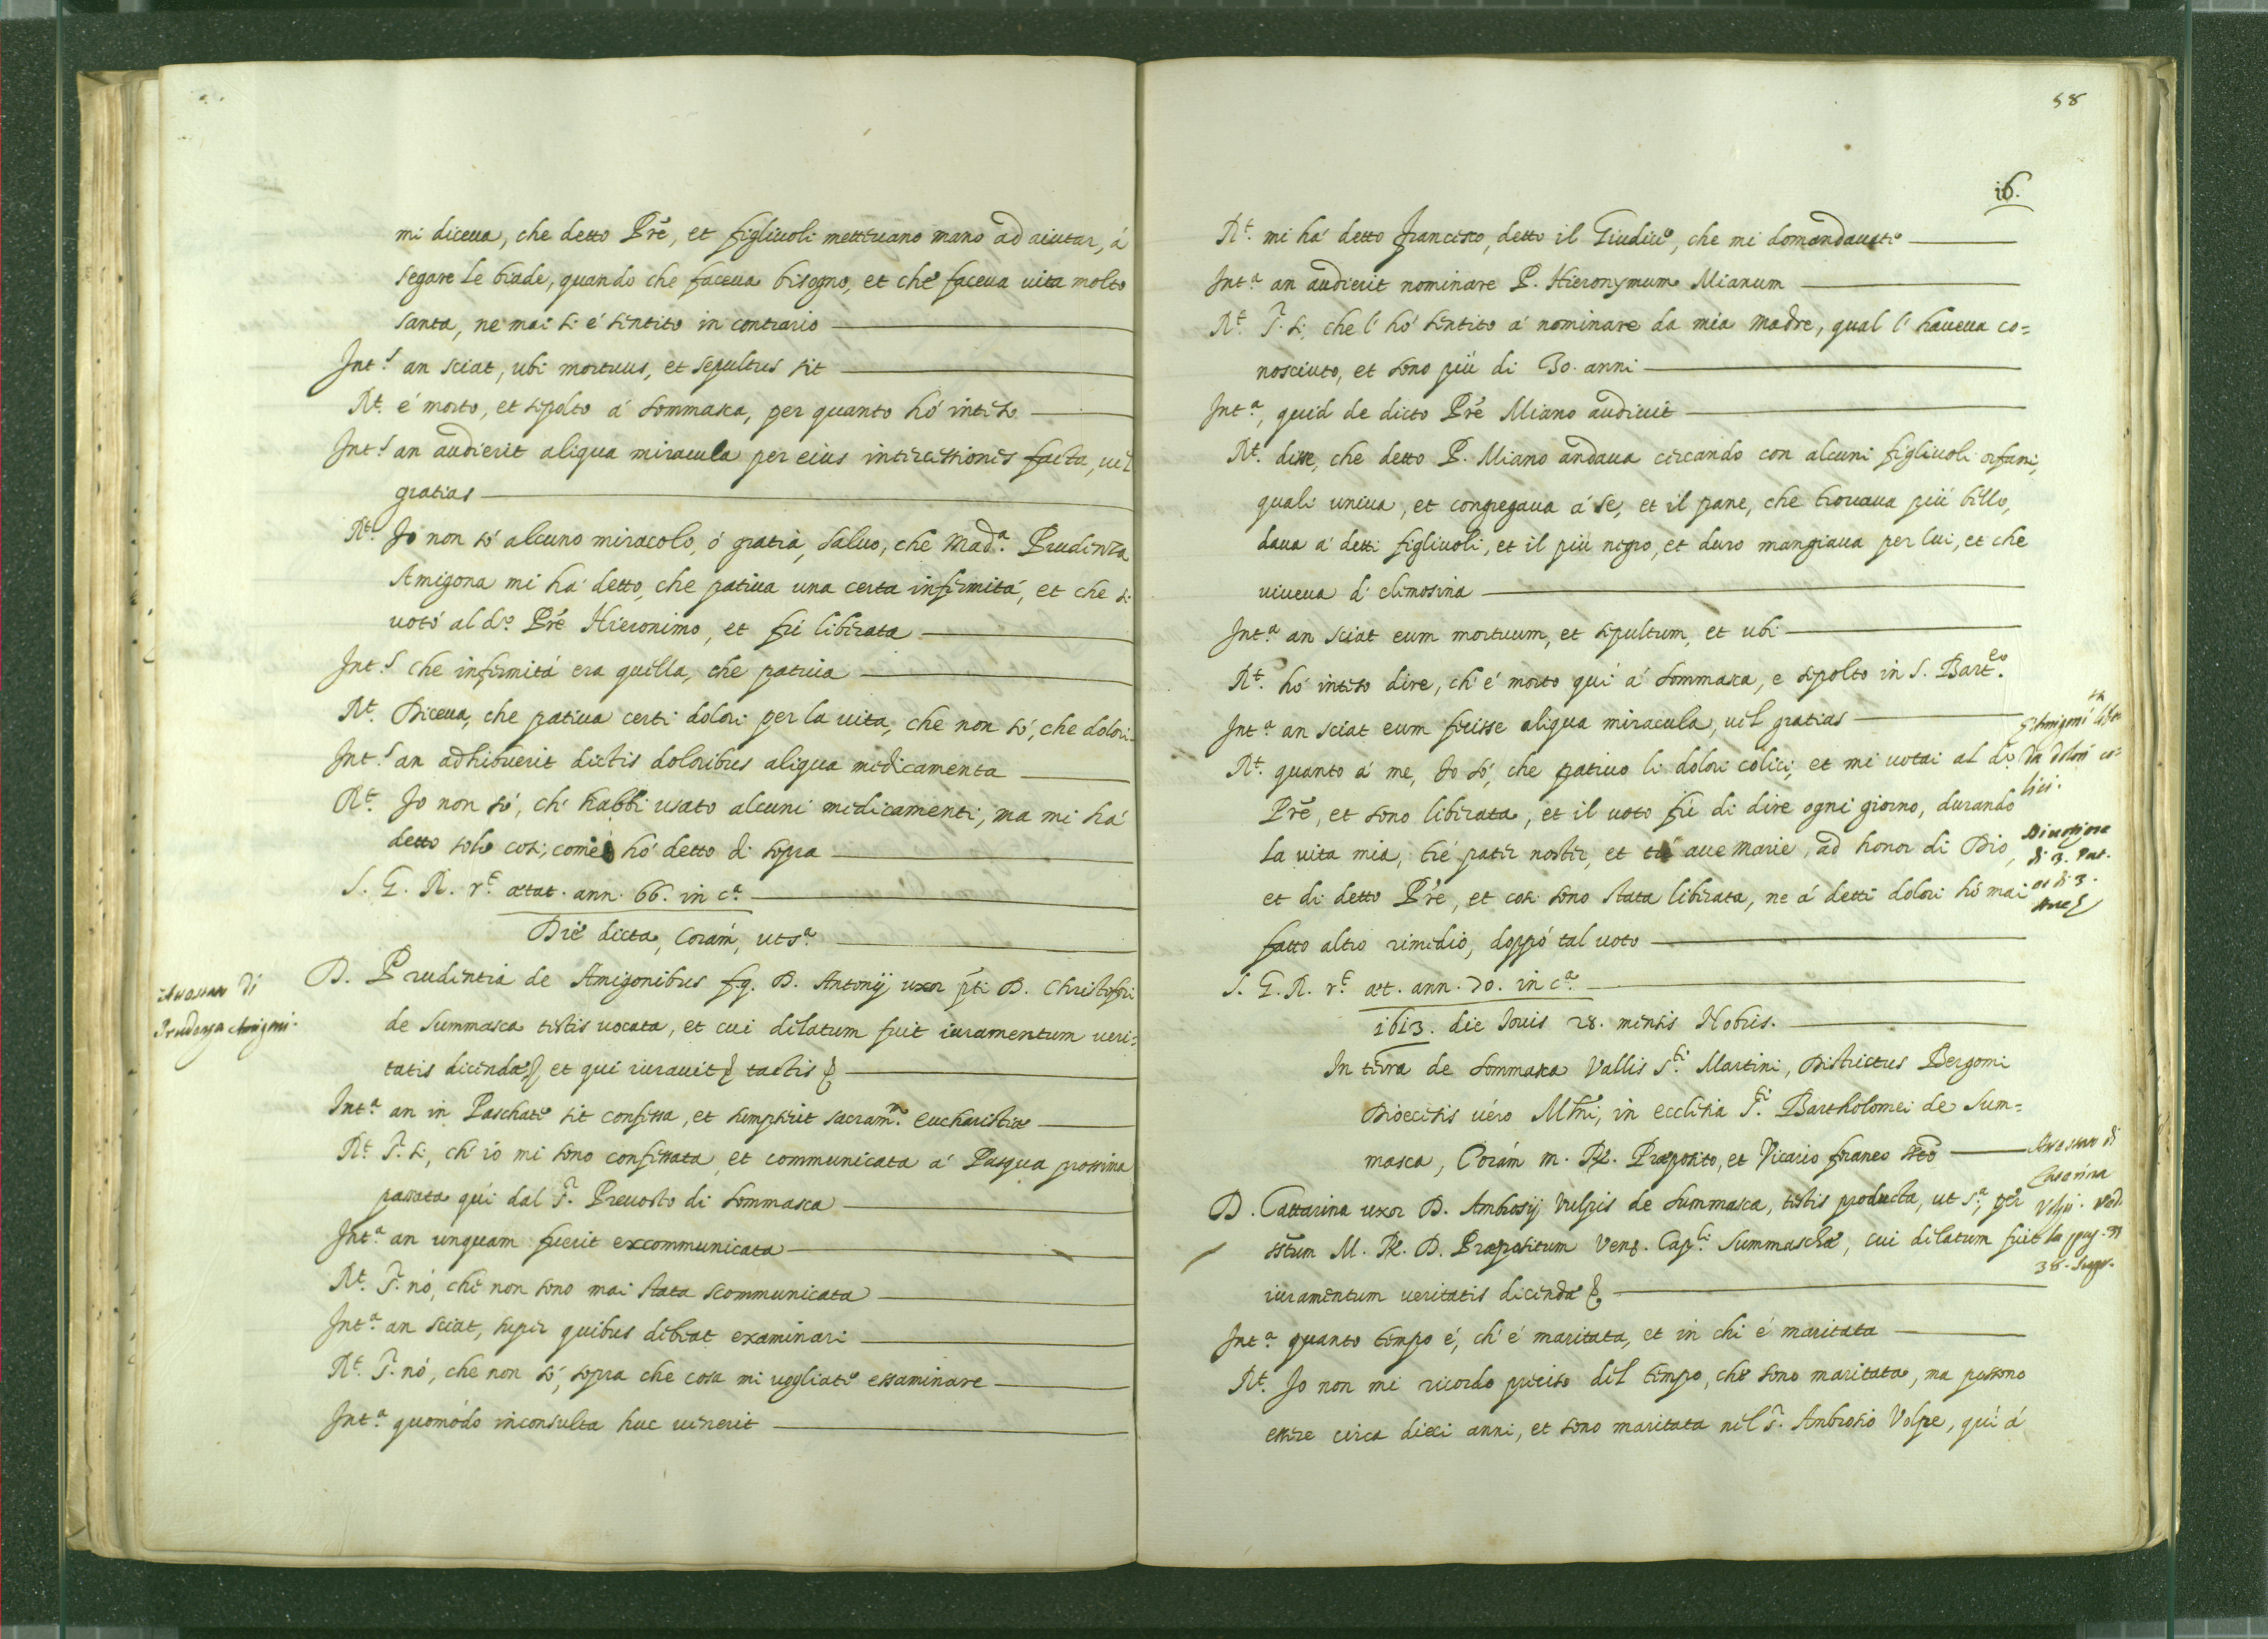 mi diceua, che detto Prē, et figliuoli metteuano mano ad aiutar, á
segare le biade, quando che faceua bisogno, et che faceua uita molto
santa, ne mai si é sentito in contrario
Int.s an sciat, ubi mortuus, et sepultus sit
Rt. é morto, et sepolto á sommasca, per quanto hó inteso
Int.s an audierit aliqua miracula per eius intercessiones facta, uel
gratias
Rt. Jo non só alcuno miracolo, ó gratia, saluo, che Mad.a Prudenza
Amigona mi há detto, che patiua una certa infermitá, et che si
uotó al d.o Prē Hieronimo, et fú liberata
Int.s che infermitá era quella, che patiua
Rt. Diceua, che patiua certi dolori per la uita, che non só, che dolori
Int.s an adhibuerit dictis doloribus aliqua medicamenta
Rt. Jo non só, ch' habbi usato alcuni medicamenti, ma mi há
detto solo cosi, come hó detto di sopra
S. G. R. r.t ætat. ann. 66. in c.a
Die dicta, Corám, ut s.a
D. Prudentia de Amigonibus fq. D. Antonij uxor pti D. Christofori
de Summasca testis uocata, et cui delatum fuit iuramentum ueri=
tatis dicendæ, et qui iurauit tactis
Prudenza Amigoni.
Int.a an in Paschate sit confessa, et sumpserit sacram.m eucharistiæ
Rt. S. si, ch' io mi sono confessata et communicata á Pasqua prossima
passata qúi dal S. Preuosto di sommasca
Int.a an unquam fuerit excommunicata
Rt. S. nó, che non sono mai stata scommunicata
Int.a an sciat, super quibus debeat examinari
Rt. S. nó, che non só, sopra che cosa mi uogliate essaminare
Int.a quomódo inconsulta huc uenerit
58
16.
Rt. mi há detto Francesco, detto il Giudice, che mi domandauate
Int.a an audierit nominare P. Hieronymum Mianum
Rt. S. si, che l' hó sentito á nominare da mia madre, qual l' haueua co=
nosciuto, et sono piú di 30. anni
Int.a, quid de dicto Prē Miano audiuit
Rt. disse, che detto P. Miano andaua cercando con alcuni figliuoli orfani,
quali uniua, et congregaua á se, et il pane, che trouaua piú bello,
daua á detti figliuoli, et il piú negro, et duro mangiaua per lui, et che
uiueua di elimosina
Int.a an sciat eum mortuum, et sepultum, et ubi
Rt. hó inteso dire, ch' é morto qui á sommasca, e sepolto in S. Bart.eo
Int.a an sciat eum fecisse aliqua miracula, uel gratias
Rt. quanto á me, Jo só, che patiuo li dolori colici, et mi uotai al d.o
Prē, et sono liberata, et il uoto fú di dire ogni giorno, durando
la uita mia, tré pater noster, et tré aue Marie, ad honor di Dio,
et di detto Prē, et cosi sono stata liberata, ne á detti dolori hó mai
fatto altro rimedio, doppó tal uoto
da dolori co=
lici.
Diuotione
di 3. Pat.
et di 3.
Aue
S. G. R. r.t æt. ann. 70. in c.a
1613. die Jouis 28. mensis Nobris.
In terra de sommasca Vallis S.ti Martini, Districtus Bergomi
Dioecesis uéro Mlni, in ecclesia S.ti Bartholomei de Sum=
masca, Corám m. R. Præposito, et Vicario foraneo
D. Cattarina uxor D. Ambrosij Vulpis de Summasca, testis producta, ut s.a, per
M. R. D. Præpositum Ven. Cap.li Summaschæ, cui delatum fuit
iuramentum ueritatis dicendæ
Catarina
Int.a quanto tempo é, ch' é maritata, et in chi é maritata
Rt. Jo non mi ricordo preciso del tempo, che sono maritata, ma possono
essere circa dieci anni, et sono maritata nel S. Ambrosio Volpe, qúi á